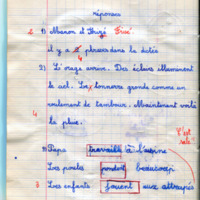 réponses
2 1) Manon et
il y a 2 phrases dans la dictée
4
2) L'orage arrive. Des éclairs illuminent
le ciel. Le tonnerre gronde comme un
roulement de tambour. Maintenant voilà
la pluie.
C'est
sale!
4 Papa travaille à l'usine
Les poules pondent beaucoup
3 Les enfants jouent aux attrapes